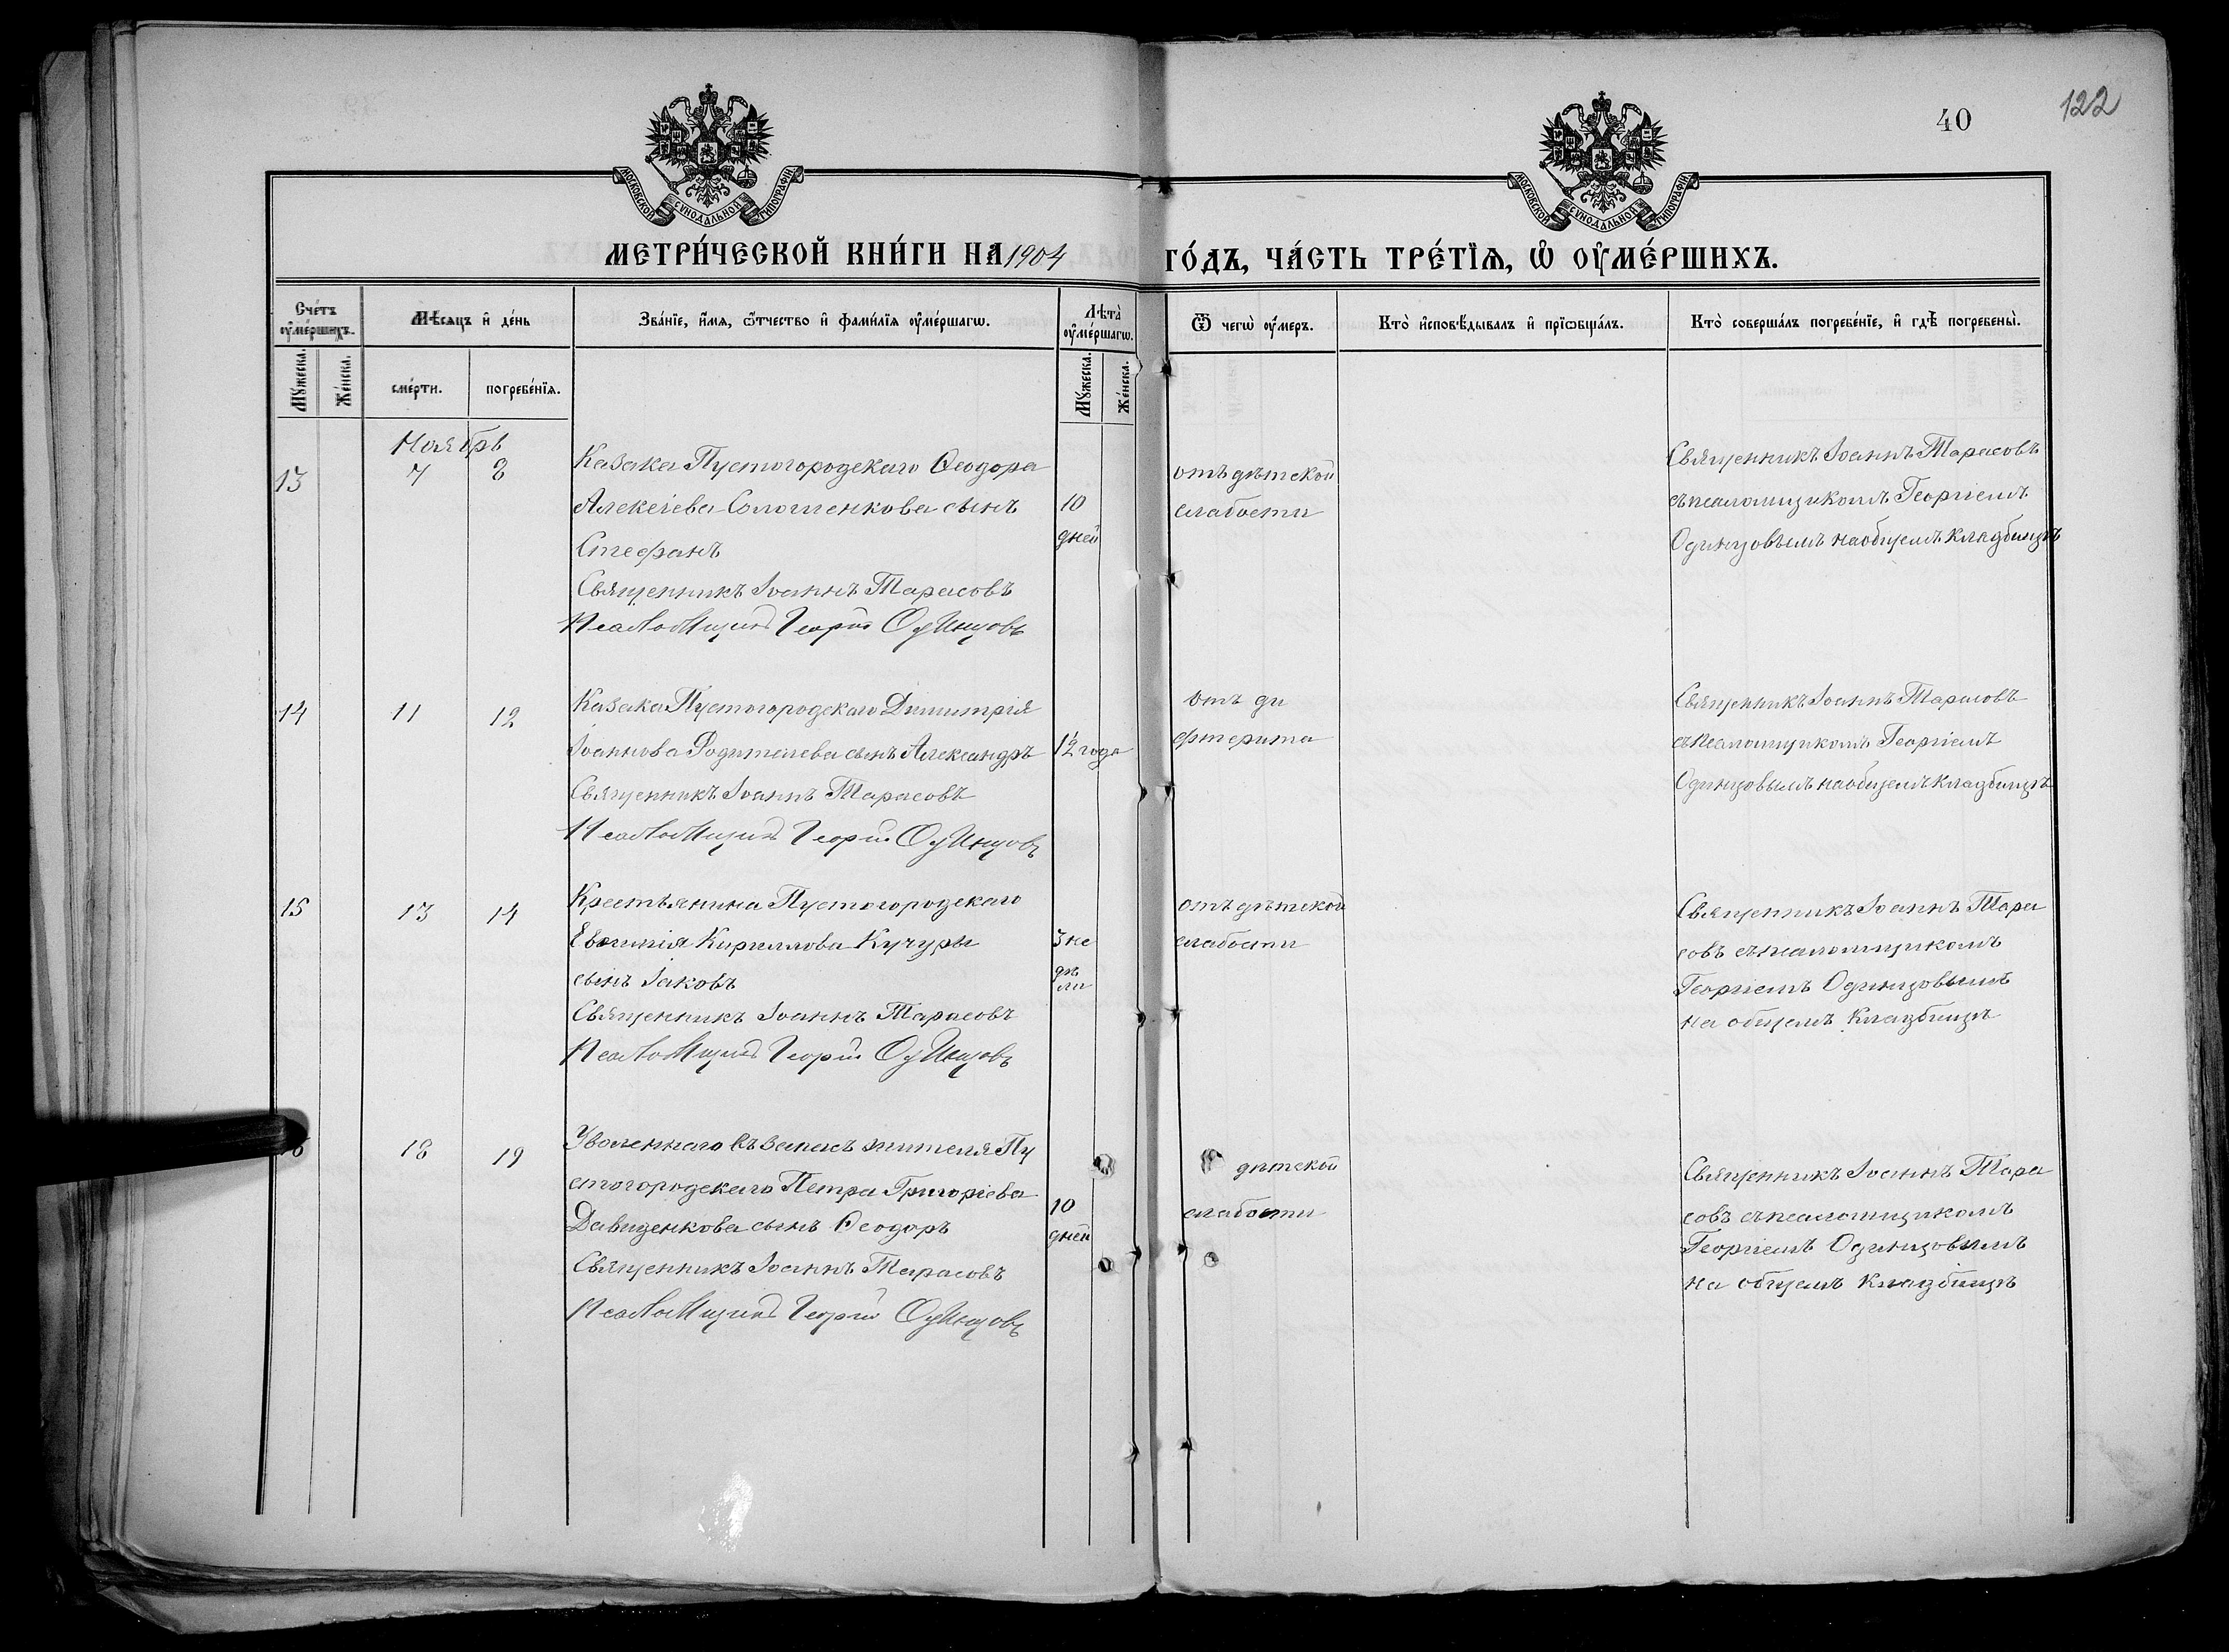 122
40
МОСКОВСКОЙ СѴНОДАЛЬНОЙ ТИПОГРАФІИ
МОСКОВСКОЙ СѴНОДАЛЬНОЙ ТИПОГРАФІИ
МЕТРИ́ЧЕСКОЙ КНИ́ГИ НА 1904 ГО́ДЪ, ЧА́СТЬ ТРЕ́ТЇѦ, Ѡ҆ ОУ҆МЕ́РШИХЪ.
Сче́тъ оу҆ме́ршихъ.
Мѣсѧцъ и҆ де́нь
Зва́нїе, и҆́мѧ, ѻ҆́тчество и҆ фами́лїѧ оу҆ме́ршагѡ.
Лѣта̀ оу҆ме́ршагѡ.
Ѿ чегѡ̀ оу҆́меръ.
Кто̀ и҆сповѣ́дывалъ и҆ прїѡбща́лъ.
Кто̀ соверша́лъ погребе́нїе, и҆ гдѣ̀ погребены̀.
Мꙋ́жеска.
Же́нска.
сме́рти.
погребе́нїѧ.
Мꙋ́жеска.
Же́нска.
Ноябрь
13 7 8
Казака Пустогородскаго Ѳеодора
Алексіева Соломенкова сынъ
Стефанъ
Священникъ Іоаннъ Тарасовъ
Псаломщикъ Георгій Одинцовъ
10
дней
отъ дѣтской
слабости
Священникъ Іоаннъ Тарасовъ
съ псаломщикомъ Георгіемъ
Одинцовымъ на общемъ кладбищѣ
14 11 12
Казака Пустогородскаго Димитрія
Іоаннова Родителева сынъ Александръ
Священникъ Іоаннъ Тарасовъ
Псаломщикъ Георгій Одинцовъ
1½ года
отъ ди
фтерита
Священникъ Іоаннъ Тарасовъ
съ псаломщикомъ Георгіемъ
Одинцовымъ на общемъ кладбищѣ
15 13 14
Крестьянина Пустогородскаго
Евѳимія Кириллова Кучуры
сынъ Іаковъ
Священникъ Іоаннъ Тарасовъ
Псаломщикъ Георгій Одинцовъ
3 не
дѣ
ли
отъ дѣтской
слабости
Священникъ Іоаннъ Тара
совъ съ псаломщикомъ
Георгіемъ Одинцовымъ
на общемъ кладбищѣ
16 18 19
Уволеннаго въ запасъ жителя Пу
стогородскаго Петра Григоріева
Давиденкова сынъ Ѳеодоръ
Священникъ Іоаннъ Тарасовъ
Псаломщикъ Георгій Одинцовъ
10
дней
дѣтской
слабости
Священникъ Іоаннъ Тара
совъ съ псаломщикомъ
Георгіемъ Одинцовымъ
на общемъ кладбищѣ